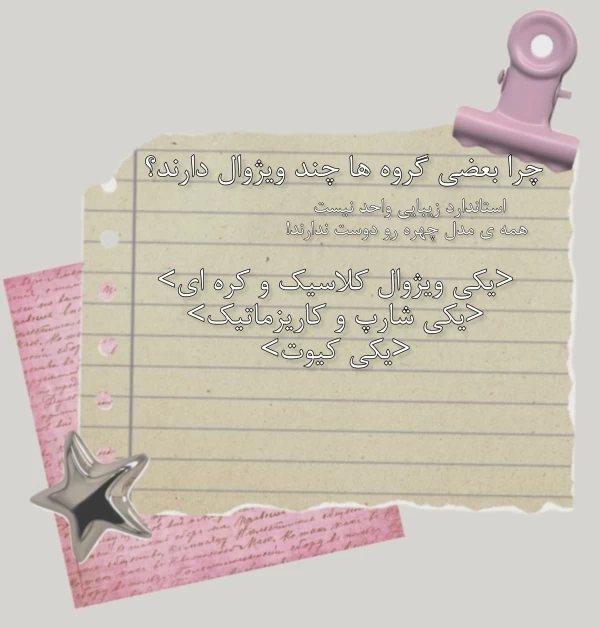 چرا بعضی گروه ها چند ویژوال دارند؟
استاندارد زیبایی واحد نیست
همه ی مدل چهره رو دوست ندارند!
<یکی ویژوال کلاسیک و کره ای>
<یکی شارپ و کاریزماتیک>
<یکی کیوت>